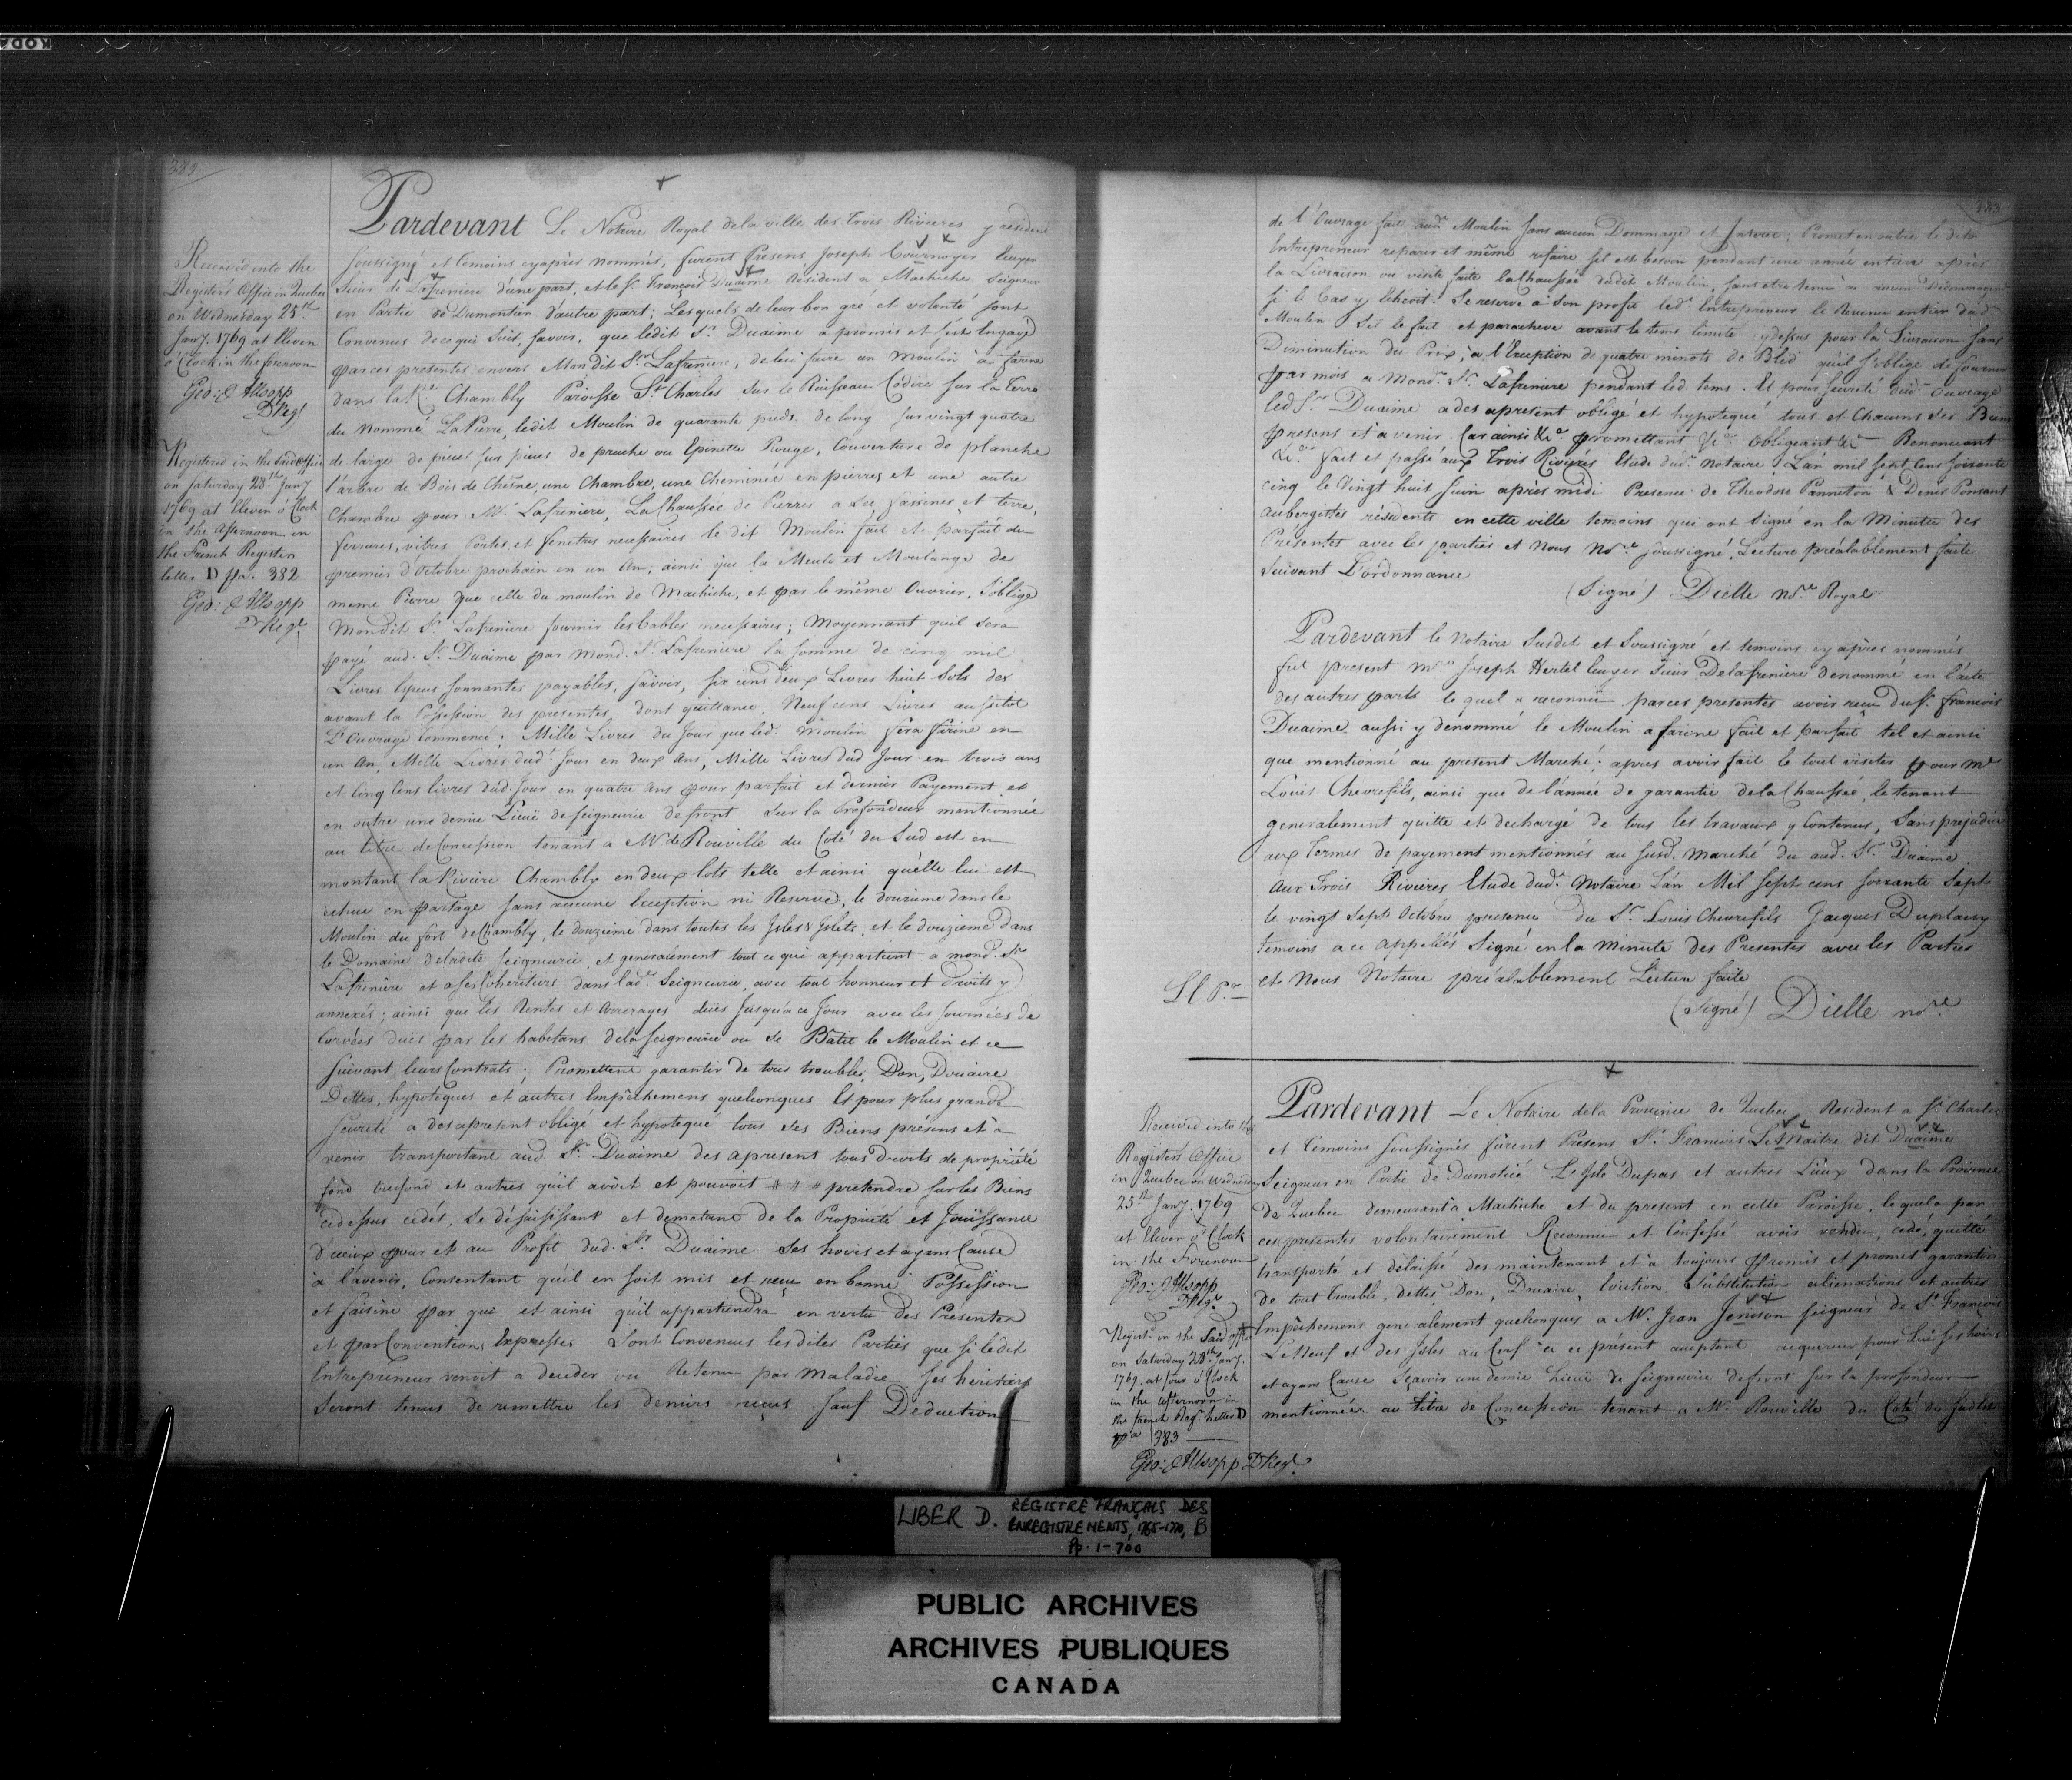 382
Received into the
Register's Office in Quebec
on Wednesday 25th
Jany. 1769 at Eleven
o'Clock in the forenoon
Geo: Allsopp
D Regr
Registered in the said Office
on Saturday 28th Jany
1769 at Eleven o'Clock
in the Afternoon in
the French Register
letter D pa. 382
Geo: Allsopp
D Regr
Pardevant Le Notaire Royal de la ville des Trois Rivieres y resident
soussigné et temoins cyaprès nommés, furent Présens Joseph Cournoyer Ecuyer
Sieur de Lafreniere d'une part, et le Sr. François Duaime Résident a Machiche Seigneur
en Partie de Dumontier d'autre part; Lesquels de leur bon gré et volonté sont
Convenus de ce qui Suit, savoir, que ledit Sr. Duaime a promis et s'est Engagé
par ces presentes envers Mondit Sr. Lafreniere, de lui faire un Moulin à farine
dans la Chambly Paroisse St. Charles sur le Ruisseau Codire sur la Terre
du Nommé LaPierre, ledit Moulin de quarante pieds de long sur vingt quatre
de large de pieces sur pieces de pruche ou Epinette Rouge, Couverture de planche
l'arbre de Bois de Chesne, une Chambre, une Cheminée en pierres et une autre
Chambre pour Mr. Lafreniere, La Chaussée de Pierres a Sec, fassines et terre,
ferrures, vitres Portes, et fenetres necessaires le dit Moulin fait et parfait du
premier d'Octobre prochain en un An; ainsi que la Meule et Moulange de
meme Pierre que celle du moulin de Machiche, et par le même Ouvrier, s'oblige
Mondit Sr. Lafreniere fournir les Cables necessaires; Moyennant quil sera
payé aud. Sr. Duaime par Mond. Sr. Lafreniere la somme de cinq mil
Livres Especes sonnantes payables, savoir, six cens deux Livres huit Sols des
avant la Possession des presentes dont quittance, Neuf cens Livres aussitot
L'Ouvrage Commencé; Mille Livres du Jour que led. Moulin fera farine en
un An, Mille Livres dud. Jour en deux Ans, Mille Livres dud Jour en trois ans
et Cinq Cens livres dud. Jour en quatre Ans pour parfait et dernier Payement et
en outre une demie Lieuë de Seigneurie de front Sur la Profondeur mentionnée
au titre de Concession tenant a Mr de Rouville du Coté du Sud est en
montant la Riviere Chambly en deux lots telle et ainsi qu'elle lui est
echue en Partage sans aucune Exception ni Reserve, le douzieme dans le
Moulin du fort de Chambly, le douzieme dans toutes les Isles & Islets, et le douzieme dans
le Domaine de ladite Seigneurie, et generalement tout ce qui appartient a mond. Sr
Lafreniere et a ses Coheritiers dans lad. Seigneurie, avec tout honneur et Droits y
annexés; ainsi que les Rentes et Arrerages dües Jusqu'a ce Jour avec les Journées de
Corvées duës par les habitans de la Seigneurie ou se Batit le Moulin et ce
suivant leurs Contrats; Promettent garantir de tous troubles, Don, Douaire
Dettes, hypoteques et autres Empêchemens quelconques Et pour plus grande
Seureté a des apresent obligé et hypotequé tous ses Biens présens et à
venir transportant aud. Sr. Duaime des apresent tous Droits de propriété
fond trefond et autres qu'il avoit et pouvoit # # # pretendre sur les Biens
cidessus cedés, Se désaisissant et demetant de la Propriété et Jouissance
d'iceux pour et au Profit dud. Sr. Duaime Ses hoirs et ayans Cause
à l'avenir, Consentant qu'il en soit mis et reçu en bonne Possession
et saisine par qui et ainsi qu'il appartiendra en vertu des Présentes
et par Convention Expresse Sont Convenus les dites Parties que si ledit
Entrepreneur venoit a deceder ou Retenu par Maladie Ses heritiers
Seront tenus de remettre les deniers reçus sauf Deduction
383
de l'Ouvrage fait aud. Moulin sans aucun Dommage et Interet; Promet en outre le dit
Entrepreneur reparer et même refaire s'il est besoin pendant une année entiere après
la Livraison ou visite faite la Chaussée dudit Moulin, sans etre tenu a aucun Dédommagement
si le Cas y Echeoit. Se reserve à Son profit led. Entrepreneur le Revenu entier dud.
Moulin Sil le fait et paracheve avant le tems limité cydessus pour la Livraison sans
Diminution du Prix, a l'Exception de quatre minots de Bled qu'il s'oblige de fournir
par mois a Mond. Sr. Lafreniere pendant led. tems. Et pour seureté dud. Ouvrage
led Sr. Duaime a des apresent obligé et hypotequé tous et Chacuns Ses Biens
presens et a venir. Car ainsi &c. promettant &c. Obligeant &c. Renonceant
&c. fait et passé aux Trois Rivieres Etude dud. Notaire L'an mil sept Cens soixante
cinq le Vingt huit Juin après midi Presence de Theodose Panneton & Denis Ponsant
Aubergistes résidents en cette ville temoins qui ont signé en la Minutte des
Présentes avec les parties et Nous Nore. soussigné, Lecture préalablement faite
Suivant L'ordonnance
(Signé) Dielle Nore. Royal
Pardevant le Notaire Susdit et Soussigné et temoins cyaprès nommés
fut present Mre Joseph Hertel Ecuyer Sieur Delafreniere denommé en l'acte
des autres parts le quel a reconnu par ces presentes avoir reçu du Sr. François
Duaime aussi y denommé le Moulin a farine fait et parfait tel et ainsi
que mentionné au present Marché; après avoir fait le tout visiter pour Mr
Louis Chevrefils, ainsi que de l'année de garantie de la Chaussée, le tenant
generalement quitte et dechargé de tous les travaux y Contenus, Sans prejudice
aux Termes de payement mentionnés au susd. Marché du aud. Sr. Duaime.
Aux Trois Rivieres Etude dud. Notaire L'an Mil Sept cens soixante Sept
le vingt Sept Octobre presence du Sr. Louis Chevrefils Jacques Duplacy
temoins a ce appellés Signé en la Minute des Presentes avec les Parties
et Nous Notaire préalablement Lecture faite
(Signé) Dielle nore
Received into the
Registers Office
in Quebec on Wednesday
25th Jany. 1769
at Eleven o'Clock
in the Forenoon
Geo: Allsopp
D Regr
Regist. in the Said Office
on Saturday 28th Jany.
1769. at four o'Clock
in the Afternoon in
the french Regr. Letter D
pa 383
Geo: Allsopp D Regr.
Pardevant Le Notaire dela Province de Quebec Resident a St. Charles
et Temoins soussignés furent Presens Sr. Francois LeMaitre dit Duaime
Seigneur en Partie de Dumotier L'Isle Dupas et autres Lieux dans la Province
de Quebec demeurant à Machiche et du present en cette Paroisse, lequel a par
ces presentes volontairement Reconnu et Confessé avoir vendu, cedé, quitté
transporté et délaissé des maintenant et à toujours Promis et promet garantir
De tout trouble, dettes, Don, Douaire, Eviction, Substitution alienations et autres
Empêchemens generalement quelconques a Mr. Jean Jenison Seigneur de St. François
LeNeuf et des Isles au Cerf à ce présent acceptant acquereur pour Lui ses hoirs
et ayans Cause Sçavoir une demie Lieuë de Seigneurie de front sur la profondeur
mentionnée au titre de Concession tenant a Mr. Rouville du Coté du Sud Est
LIBER D. REGISTRE FRANÇAIS DES
ENREGISTREMENTS, 1765-1770, B
Pp. 1-700
PUBLIC ARCHIVES
ARCHIVES PUBLIQUES
CANADA